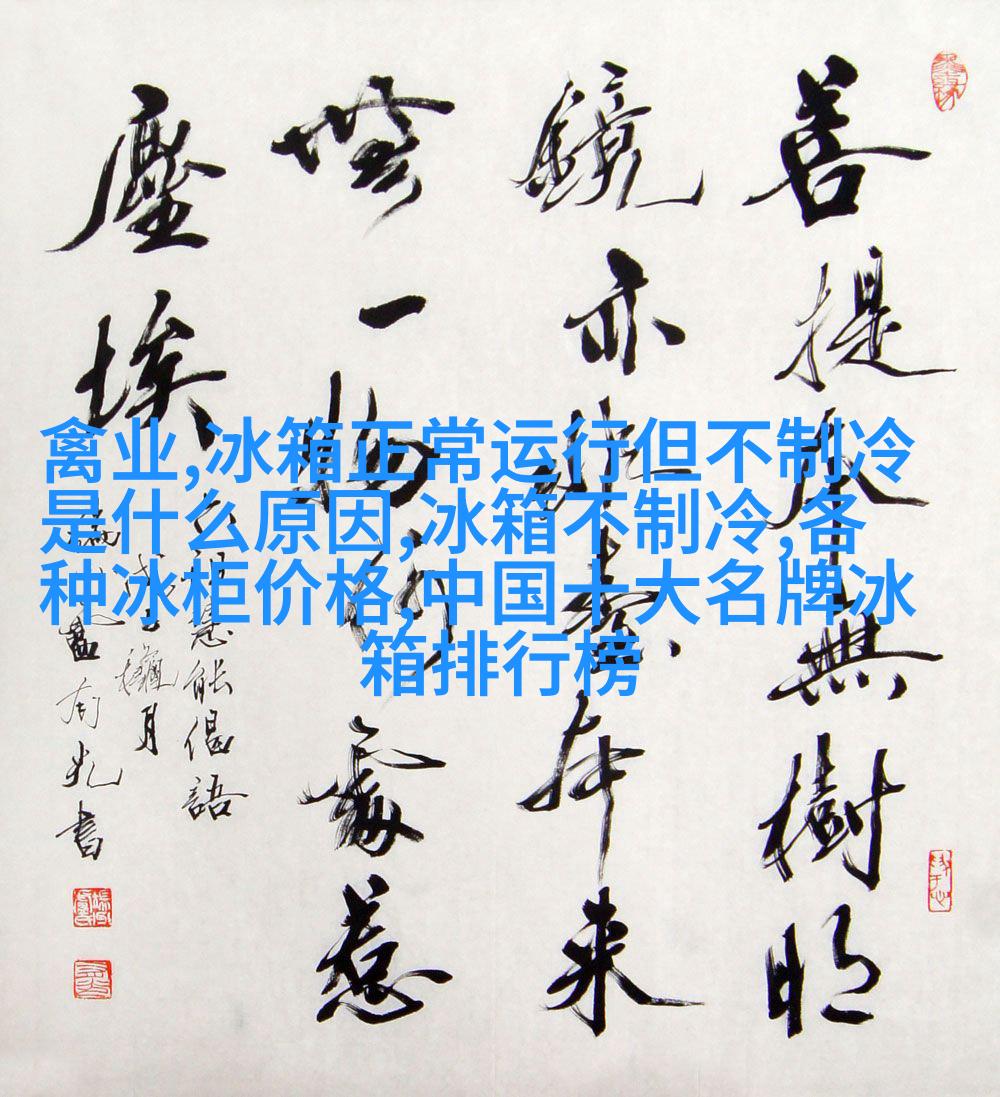 禽业,冰箱正常运行但不制冷
是什么原因,冰箱不制冷,各
种冰柜价格,中国十大名牌冰
箱排行榜
菩提本無樹明
鏡亦非臺本來
無一物何處惹
塵埃
六祖慧能偈語
月
書